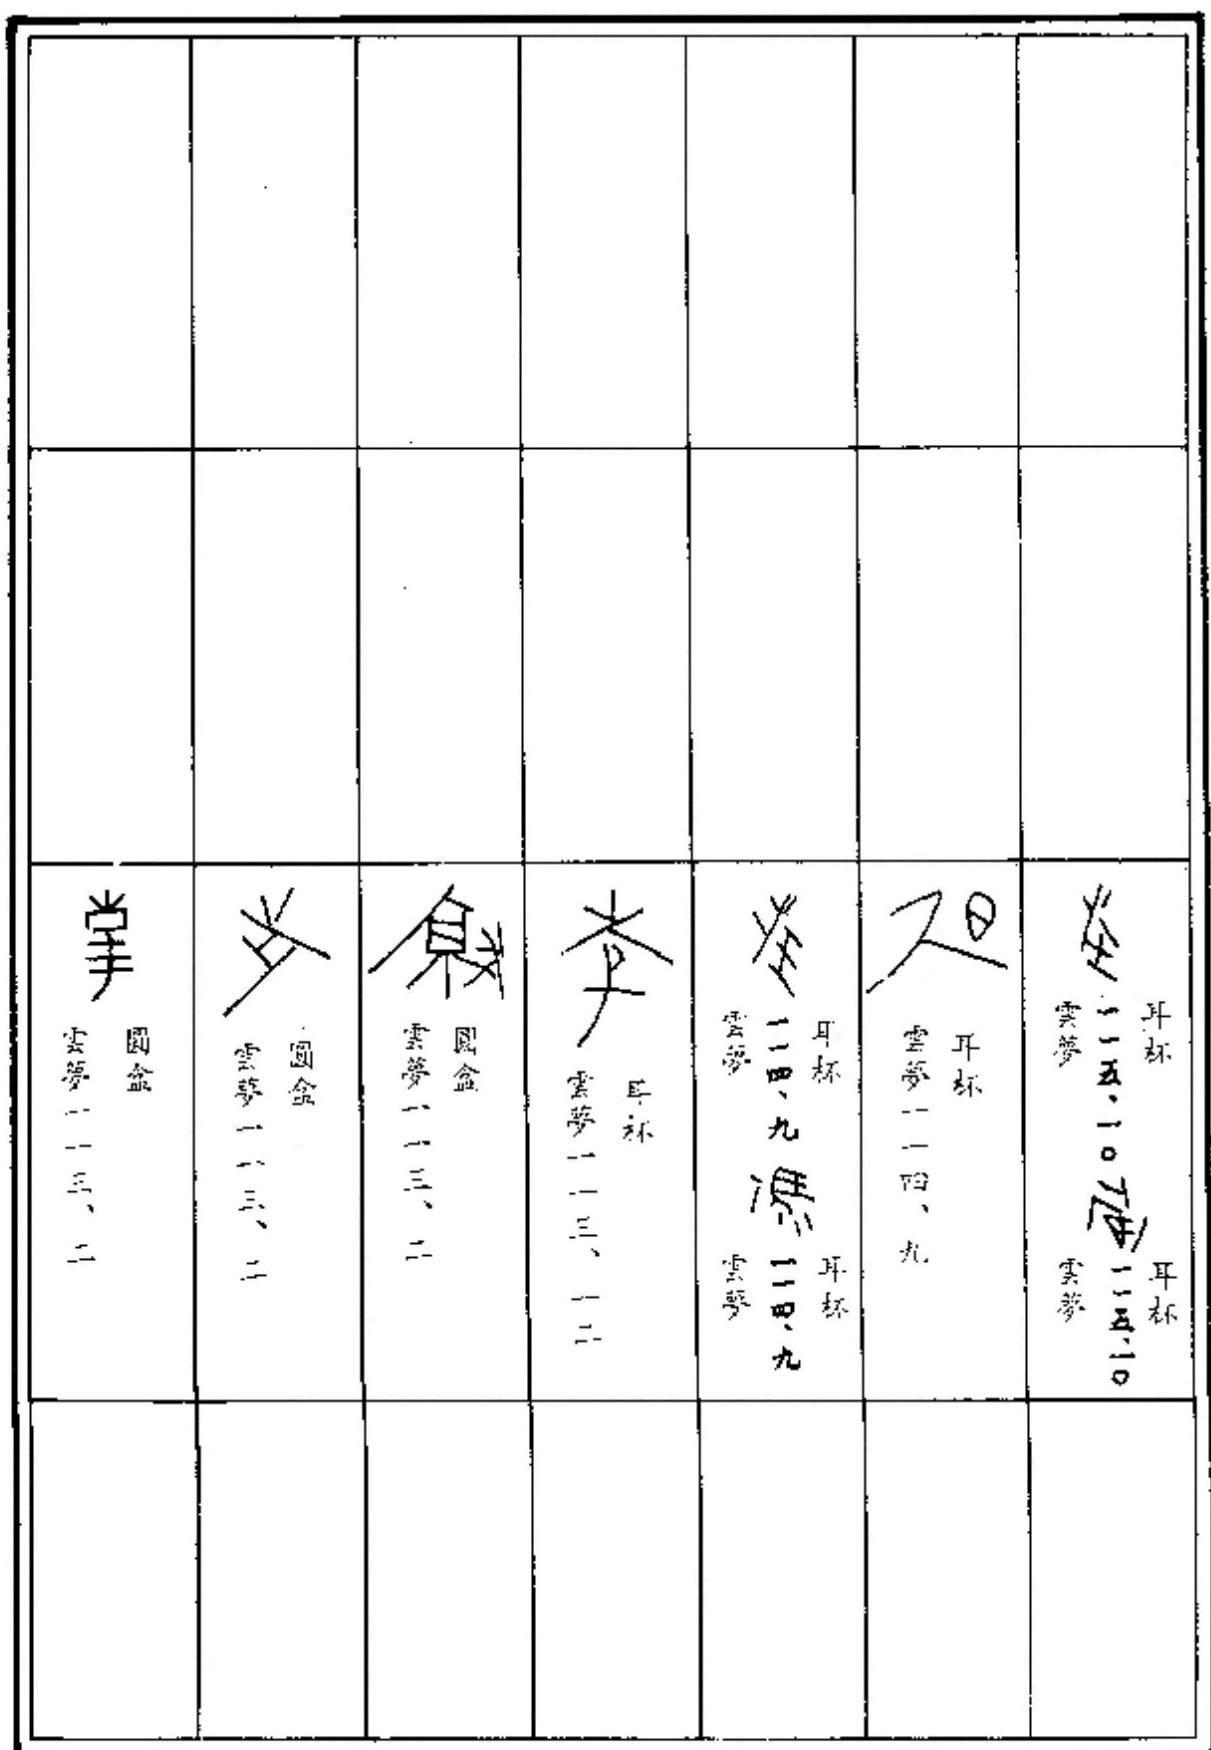 耳杯
雲夢 一一五·一0
耳杯
雲夢 一一五·一0
耳杯
雲夢一一四、九
耳杯
雲夢 一一四、九
耳杯
雲夢 一一四、九
季
耳杯
雲夢一一三、一二
圓盒
雲夢一一三、二
圓盒
雲夢一一三、二
掌
圓盒
雲夢一一三、二